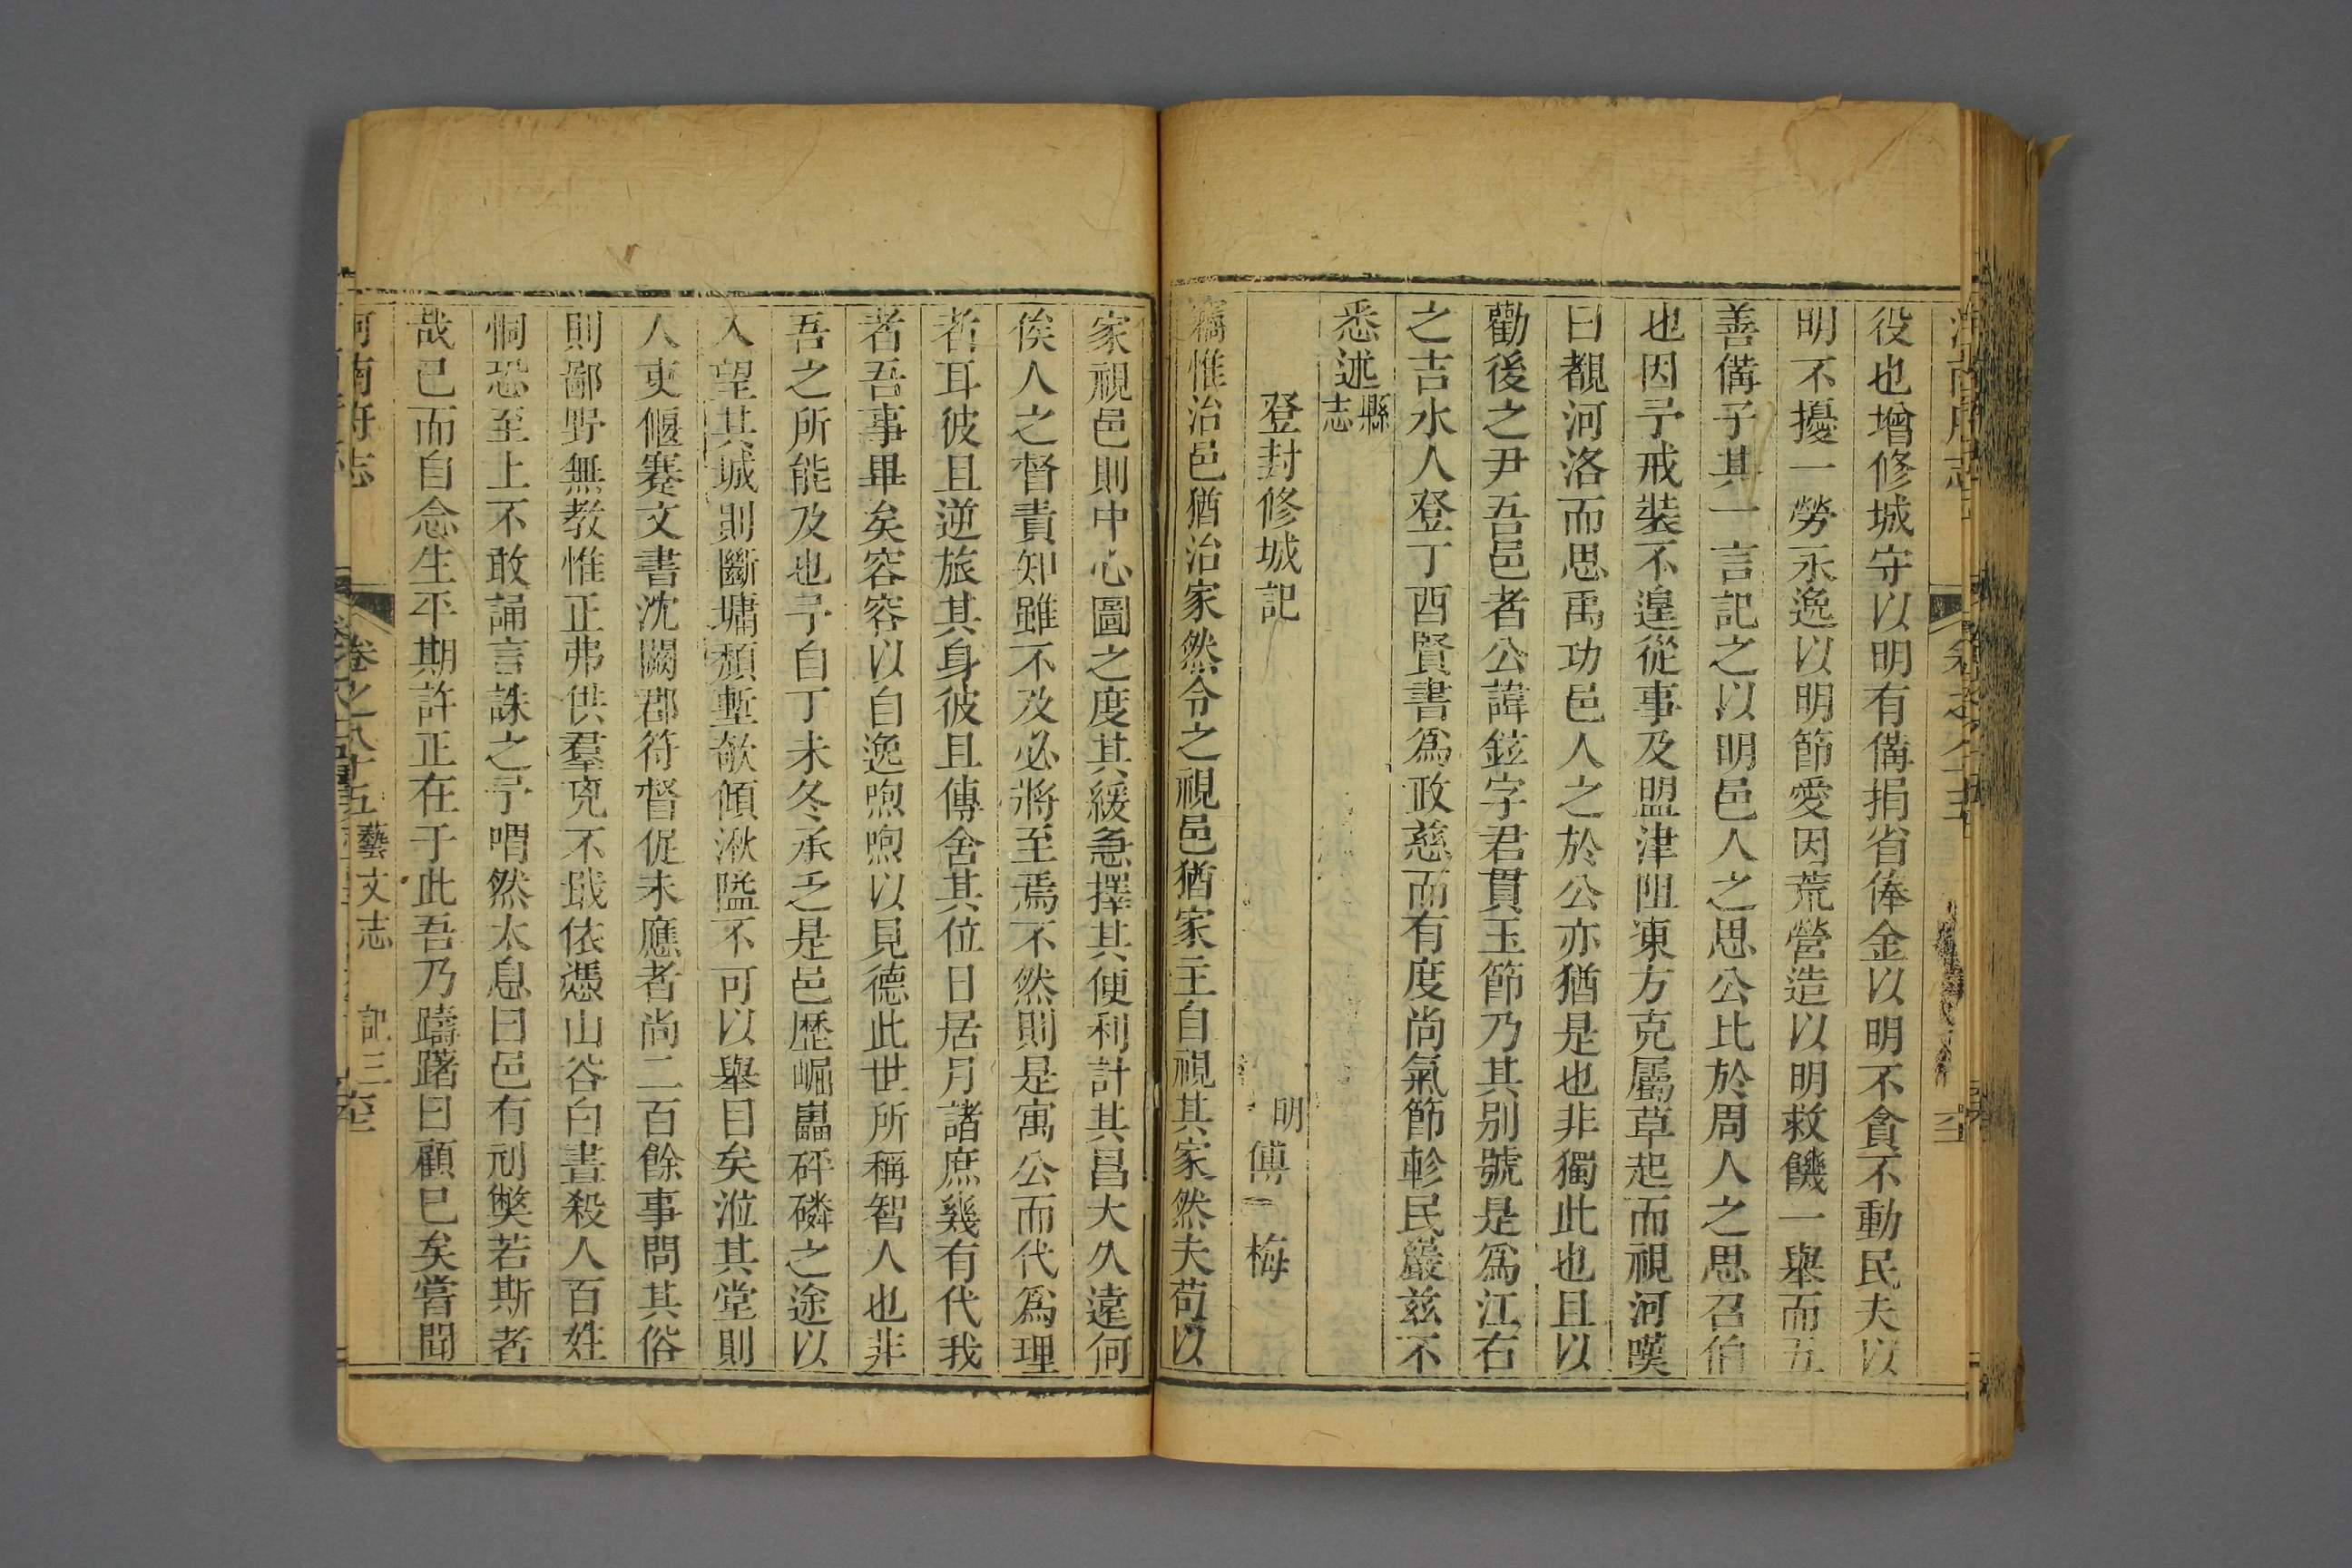 役也增修城守以明有備捐省俸金以明不貪不動民夫以
明不擾一勞永逸以明節愛因荒營造以明救饑一舉而五
善備子其一言記之以明邑人之思公比於周人之思召伯
也因予戒裝不遑從事及盟津阻凍方克屬草起而視河嘆
曰覩河洛而思禹功邑人之於公亦猶是也非獨此也且以
勸後之尹吾邑者公諱鉉字君貫玉節乃其别號是爲江右
之吉水人登丁酉賢書爲政慈而有度尚氣節軫民嚴兹不
悉述縣志
登封修城記 明傅梅
竊惟治邑猶治家然令之視邑猶家主自視其家然夫苟以
家視邑則中心圖之度其緩急擇其便利計其昌大久遠何
俟人之督責知雖不及必將至焉不然則是寓公而代爲理
者耳彼且逆旅其身彼且傳舍其位日居月諸庶幾有代我
者吾事畢矣容容以自逸喣喣以見德此世所稱智人也非
吾之所能及也予自丁未冬承乏是邑歷崛礨砰磷之途以
入望其城則斷墉頽塹欹傾湫隘不可以舉目矣涖其堂則
人吏偃蹇文書沈闕郡符督促未應者尚二百餘事問其俗
則鄙野無教惟正弗供羣兇不戢依憑山谷白晝殺人百姓
恫恐至上不敢誦言誅之予喟然太息曰邑有刓獘若斯者
哉已而自念生平期許正在于此吾乃躊躇曰顧已矣嘗聞
河南府志 卷之八十五 藝文志 記三